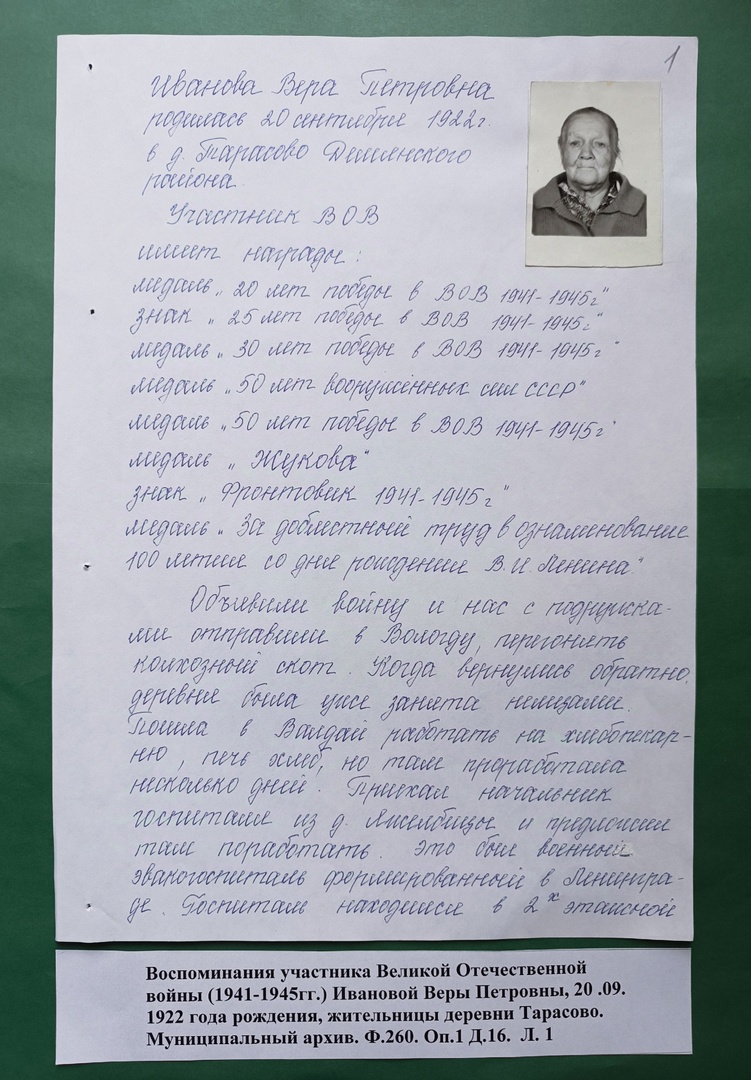 1
Иванова Вера Петровна
родилась 20 сентября 1922г.
в д. Тарасово Демянского
района.
Участник ВОВ
имеет награды:
медаль „20 лет победы в ВОВ 1941-1945г"
знак „25 лет победы в ВОВ 1941-1945г"
медаль „30 лет победы в ВОВ 1941-1945г"
медаль „50 лет вооружённых сил СССР"
медаль „50 лет победы в ВОВ 1941-1945г"
медаль „Жукова"
знак „Фронтовик 1941-1945г"
медаль „За доблестный труд в ознаменование
100 летия со дня рождения В.И. Ленина"
Объявили войну и нас с подружка-
ми отправили в Вологду, перегонять
колхозный скот. Когда вернулись обратно,
деревня была уже занята немцами.
Пошла в Валдай работать на хлебопекар-
ню, печь хлеб, но там проработала
несколько дней. Приехал начальник
госпиталя из д. и предложил
там поработать. Это был военный
эвакогоспиталь формированный в Ленингра-
де. Госпиталь находился в 2х этажной
Воспоминания участника Великой Отечественной
войны (1941-1945гг.) Ивановой Веры Петровны, 20 .09.
1922 года рождения, жительницы деревни Тарасово.
Муниципальный архив. Ф.260. Оп.1 Д.16. Л. 1